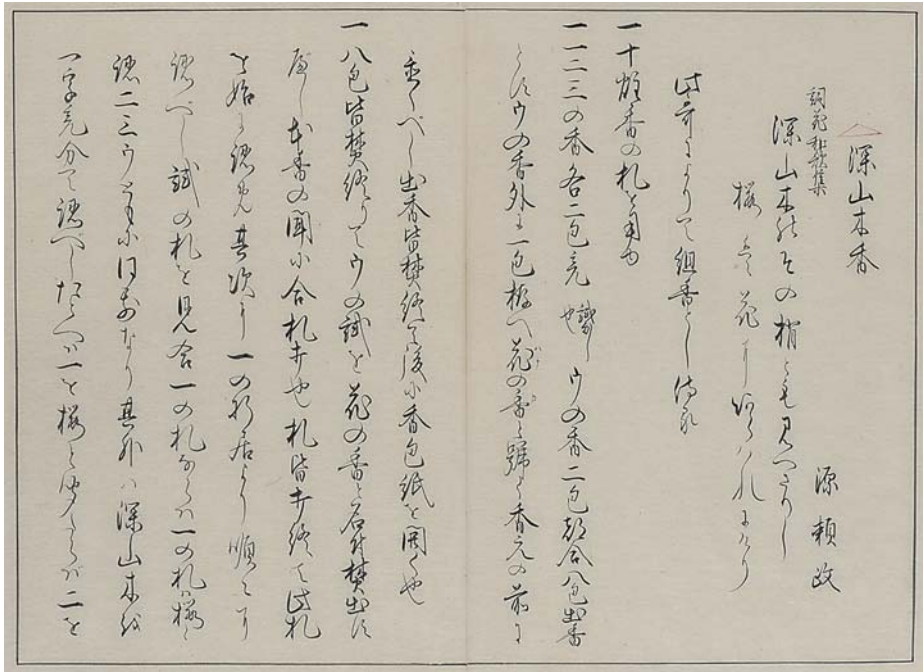 深山木香
詞花和歌集 源頼政
深山木のその梢とも見へさりし
桜は花にあらはれにけり
此哥によりて組香とし侍る
一十炷香の札を用ゆ
一一二三の香各二包充 ウの香二包都合八包出香
とすウの香外に一包拵へ花の香と号し香元の前に
置くべし出香皆焚終て後に香包紙を開く也
一八包皆焚終りてウの試を花の香と名付焚出す
本香の聞に合札打也札皆打終て此札
を始に認め其次に一の
認べし試の札を見合一の札ならは一の札は桜と
認二三ウともに同前なり其外は深山木
一字充分て認べしたとへは一を桜と二を